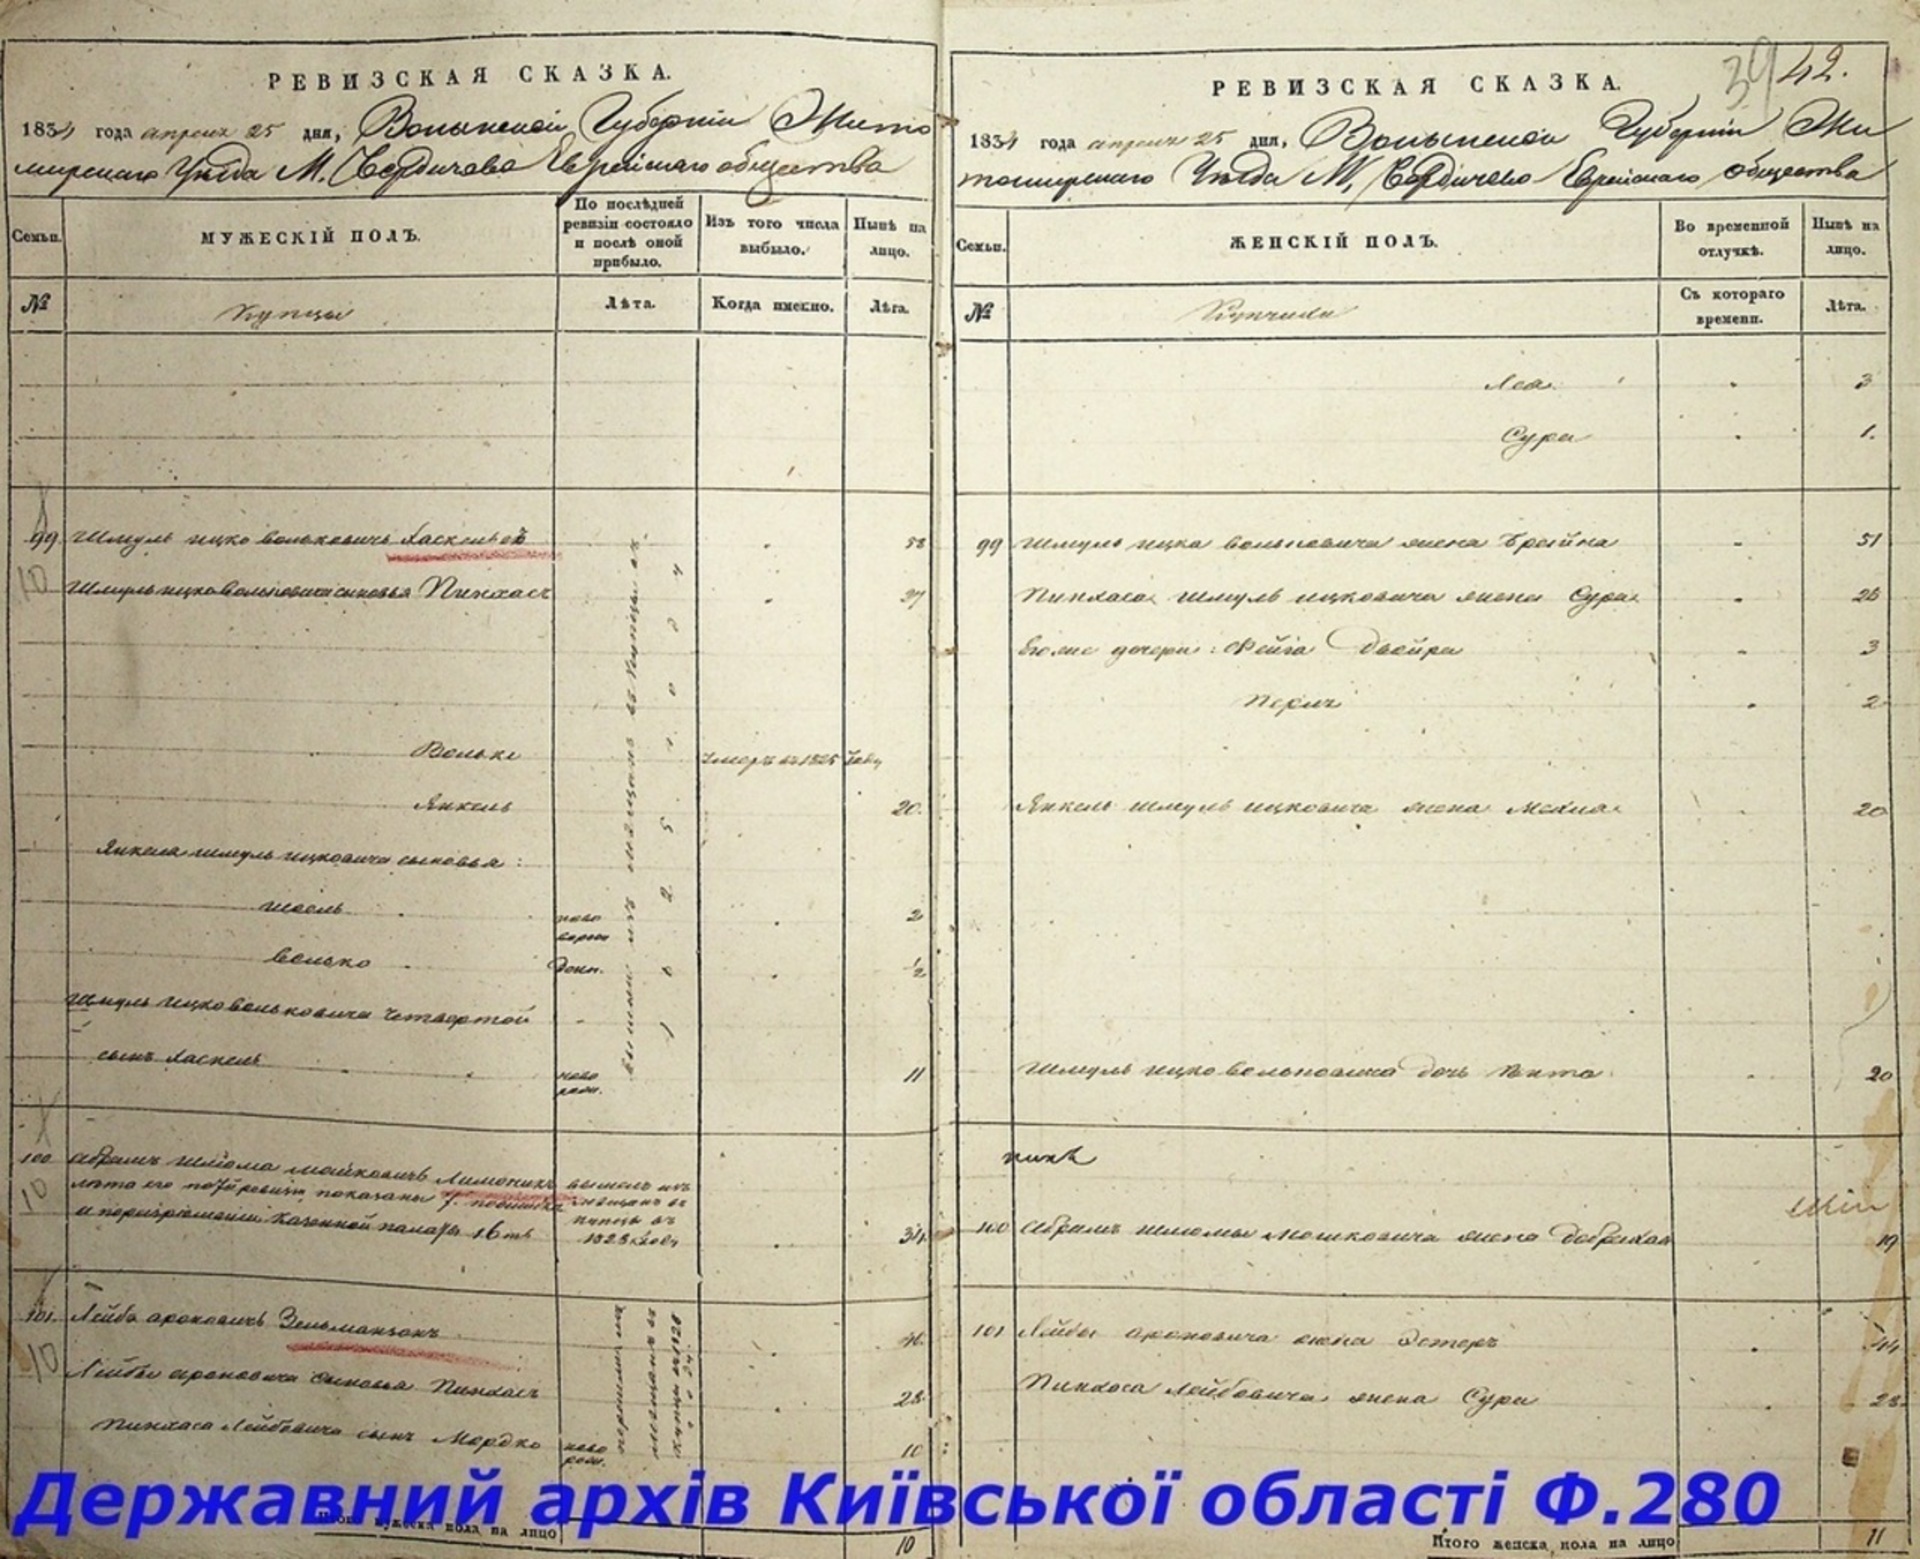 РЕВИЗСКАЯ СКАЗКА.
1834 года апреля 25 дня, Волынской Губерніи Жито
мирскаго Уѣзда М. Бердичева Еврейскаго общества
Семьи.
МУЖЕСКІЙ ПОЛЪ.
По послѣдней ревизіи состояло и послѣ оной прибыло.
Изъ того числа выбыло.
Нынѣ на лицо.
№
Купцы
Лѣта.
Когда именно.
Лѣта.
99 Шмуль ицко вольковичъ Хаскельов 53
10
Шмуль ицко Вольковича сыновья Пинхасъ 27
Вольке Умеръ въ 1825 году
Янкель 20.
Янкеля шмуль ицковича сыновья:
ново
2
волько тоже. ½
Шмуль ицко вольковича четвертой
сынъ Хаскель ново рож. 11
вышли изъ мѣщанъ въ купцы въ
100 Абрамъ шлiома мошковичъ
лѣта его по 7й ревизіи показаны 7.
и по разрешенiи казенной палаты 16ть
вышелъ изъ мѣщанъ въ купцы въ 1828 году
34
10
101. Лейба ароновичъ Зельмансонъ
10
Лейбы ароновича сыновья Пинхасъ 28
Пинхаса Лейбовича сынъ Мордко ново рож. 10
мѣщанъ въ
купцы въ 1828
Итого мужеска пола на лицо 10
39 42.
РЕВИЗСКАЯ СКАЗКА.
1834 года апреля 25 дня, Волынской Губерніи Жи
томирскаго Уѣзда М. Бердичева Еврейскаго общества
Семьи.
ЖЕНСКІЙ ПОЛЪ.
Во временной отлучкѣ.
Нынѣ на лицо.
№
Съ котораго времени.
Лѣта.
Лея 3
Сура 1.
99 Шмуль ицка вольковича жена Брейна 51
Пинхаса шмуль ицковича жена Сура 26
Его же дочери: Фейга Двойра 3
Перль 2
Янкель шмуль ицковича жена 20
Шмуль ицко вольковича дочь 20
100 Абрамъ шлiомы мошковича жена 19
101 Лейбы ароновича жена Эстеръ 44
Пинхаса Лейбовича жена Сура 28.
Итого женска пола на лицо 11
Державний архів Київської області Ф.280